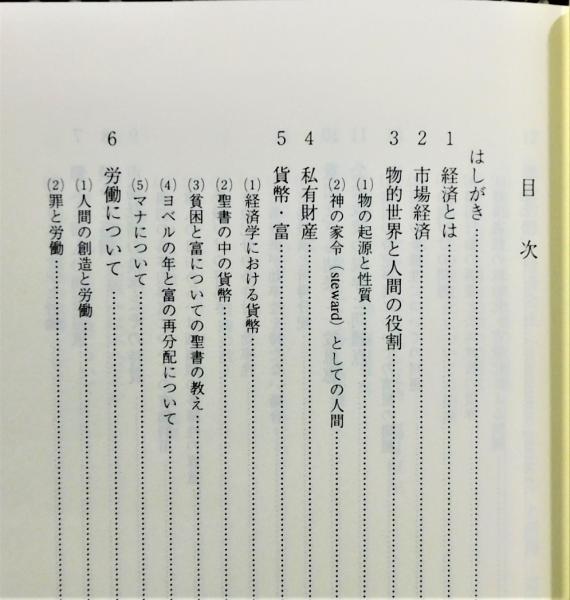 目次
はしがき
1 経済とは
2 市場経済
3 物的世界と人間の役割
(1)物の起源と性質
(2)神の家令（steward）としての人間
4 私有財産
5 貨幣・富
(1)経済学における貨幣
(2)聖書の中の貨幣
(3)貧困と富についての聖書の教え
(4)ヨベルの年と富の再分配について
(5)マナについて
6 労働について
(1)人間の創造と労働
(2)罪と労働